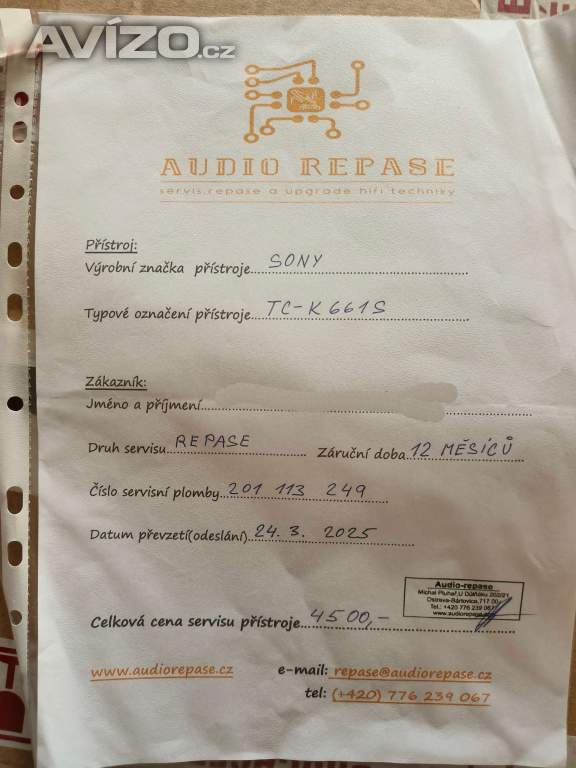 AVÍZO.cz
AUDIO REPASE
servis,repase a upgrade hifi techniky
Přístroj:
Výrobní značka přístroje SONY
Typové označení přístroje TC-K661S
Zákazník:
Jméno a příjmení
Druh servisu REPASE Záruční doba 12 MĚSÍCŮ
Číslo servisní plomby 201 113 249
Datum převzetí(odeslání) 24. 3. 2025
Audio-repase
Michal Pluhař,U
Ostrava-Bártovice,717 00
Tel.: +420 776 239 067
www.audiorepase
Celková cena servisu přístroje 4500,-
www.audiorepase.cz e-mail: repase@audiorepase.cz
tel: (+420) 776 239 067